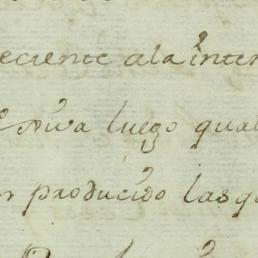 eciente ala inten
Activa luego qual
n producido lasq